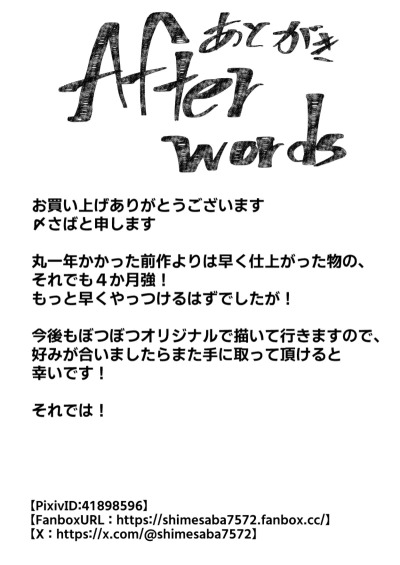 あとがき
After
words
お買い上げありがとうございます
〆さばと申します
丸一年かかった前作よりは早く仕上がった物の、
それでも４か月強！
もっと早くやっつけるはずでしたが！
今後もぼつぼつオリジナルで描いて行きますので、
好みが合いましたらまた手に取って頂けると
幸いです！
それでは！
【PixivID:41898596】
【FanboxURL：https://shimesaba7572.fanbox.cc/】
【X：https://x.com/@shimesaba7572】